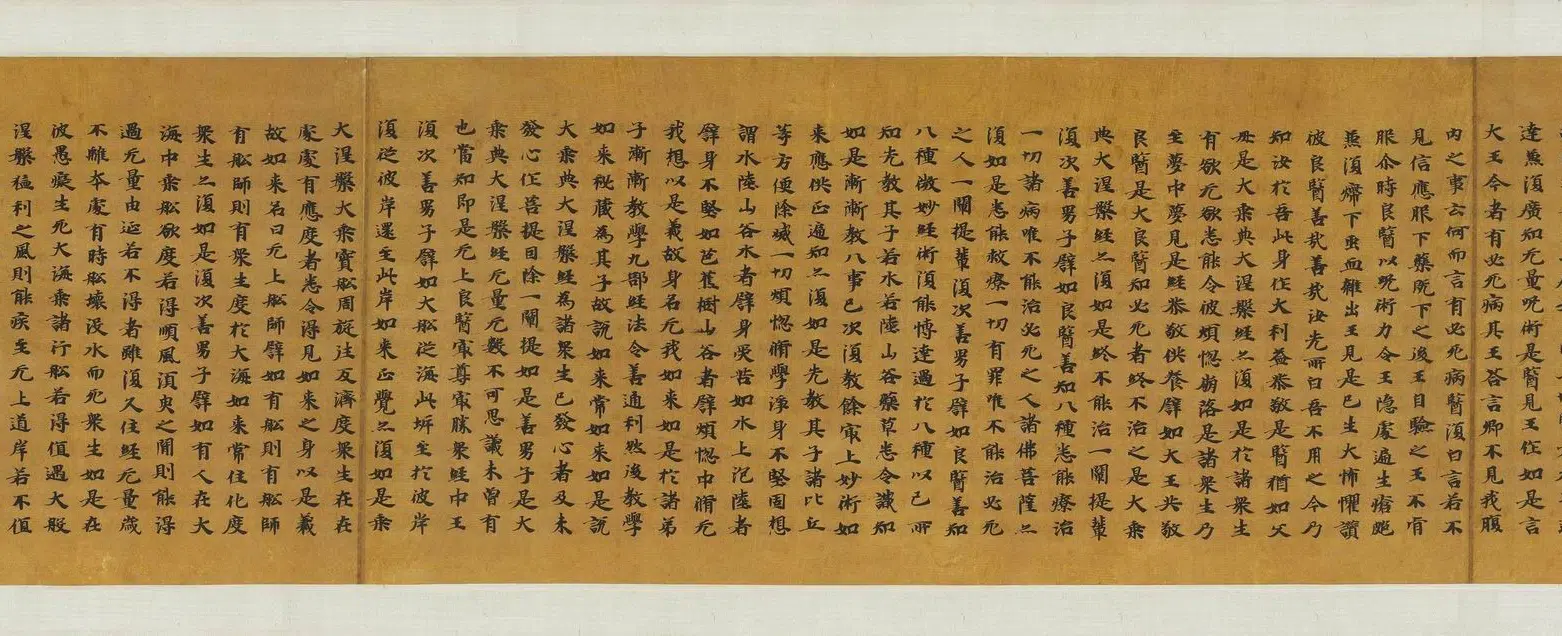 達兼復廣知无量呪術是醫見王作如是言
大王今者有必死病其王荅言卿不見我腹
內之事云何而言有必死病醫復曰言若不
見信應服下藥既下之後王自驗之王不肯
服尒時良醫以呪術力令王隱處遍生瘡皰
兼復下虫血雜出王見是已生大怖懼讚
彼良醫善哉善哉汝先所白吾不用之今乃
知汝於吾此身作大利益恭敬是醫猶如父
母是大乘典大涅槃經亦復如是於諸衆生
有欲无欲悉能令彼煩惱崩落是諸衆生乃
至夢中夢見是經恭敬供養譬如大王共敬
良醫是大良醫知必死者終不治之是大乘
典大涅槃經亦復如是終不能治一闡提輩
復次善男子譬如良醫善知八種悉能療治
一切諸病唯不能治必死之人諸佛菩薩亦
復如是悉能救療一切有罪唯不能治必死
之人一闡提輩復次善男子譬如良醫善知
八種微妙經術復能博達過於八種以己所
知先教其子若水若陸山谷藥草悉令識知
如是漸漸教八事已次復教餘最上妙術如
來應供正遍知亦復如是先教其子諸比丘
等方便除滅一切煩惱脩學淨身不堅固想
謂水陸山谷水者譬身受苦如水上泡陸者
譬身不堅如芭蕉樹山谷者譬煩惱中脩无
我想以是義故身名无我如來如是於諸弟
子漸漸教學九部經法令善通利然後教學
如來祕藏為其子故說如來常如來如是說
大乘典大涅槃經為諸衆生已發心者及未
發心作菩提因除一闡提如是善男子是大
乘典大涅槃經无量无數不可思議未曾有
也當知即是无上良醫最尊最勝衆經中王
復次善男子譬如大船從海此岸至於彼岸
復從彼岸還至此岸如來正覺亦復如是乘
大涅槃大乘寶船周旋往反濟度衆生在在
處處有應度者悉令得見如來之身以是義
故如來名曰无上船師譬如有船則有船師
有船師則有衆生度於大海如來常住化度
衆生亦復如是復次善男子譬如有人在大
海中乘船欲度若得順風須臾之間則能得
過无量由延若不得者雖復久住經无量歲
不離本處有時船壞沒水而死衆生如是在
彼愚癡生死大海乘諸行船若得值遇大般
涅槃猛利之風則能疾至无上道岸若不值